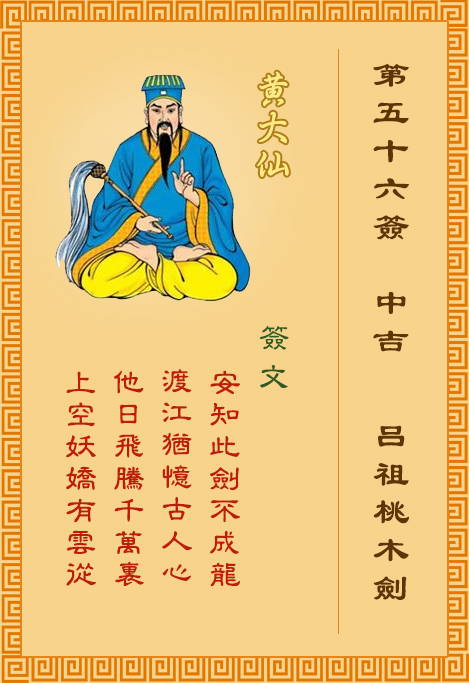 第五十六簽 中吉 呂祖桃木劍
黃大仙
簽文
安知此劍不成龍
渡江猶憶古人心
他日飛騰千萬裏
上空妖嬌有雲從